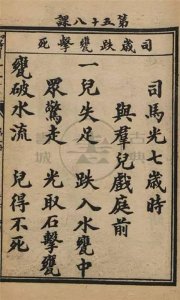 第五十八課
司歲跌甕擊死
司馬光七歲時
與羣兒戲庭前
一兒失足 跌入水甕中
眾驚走 光取石擊甕
甕破水流 兒得不死